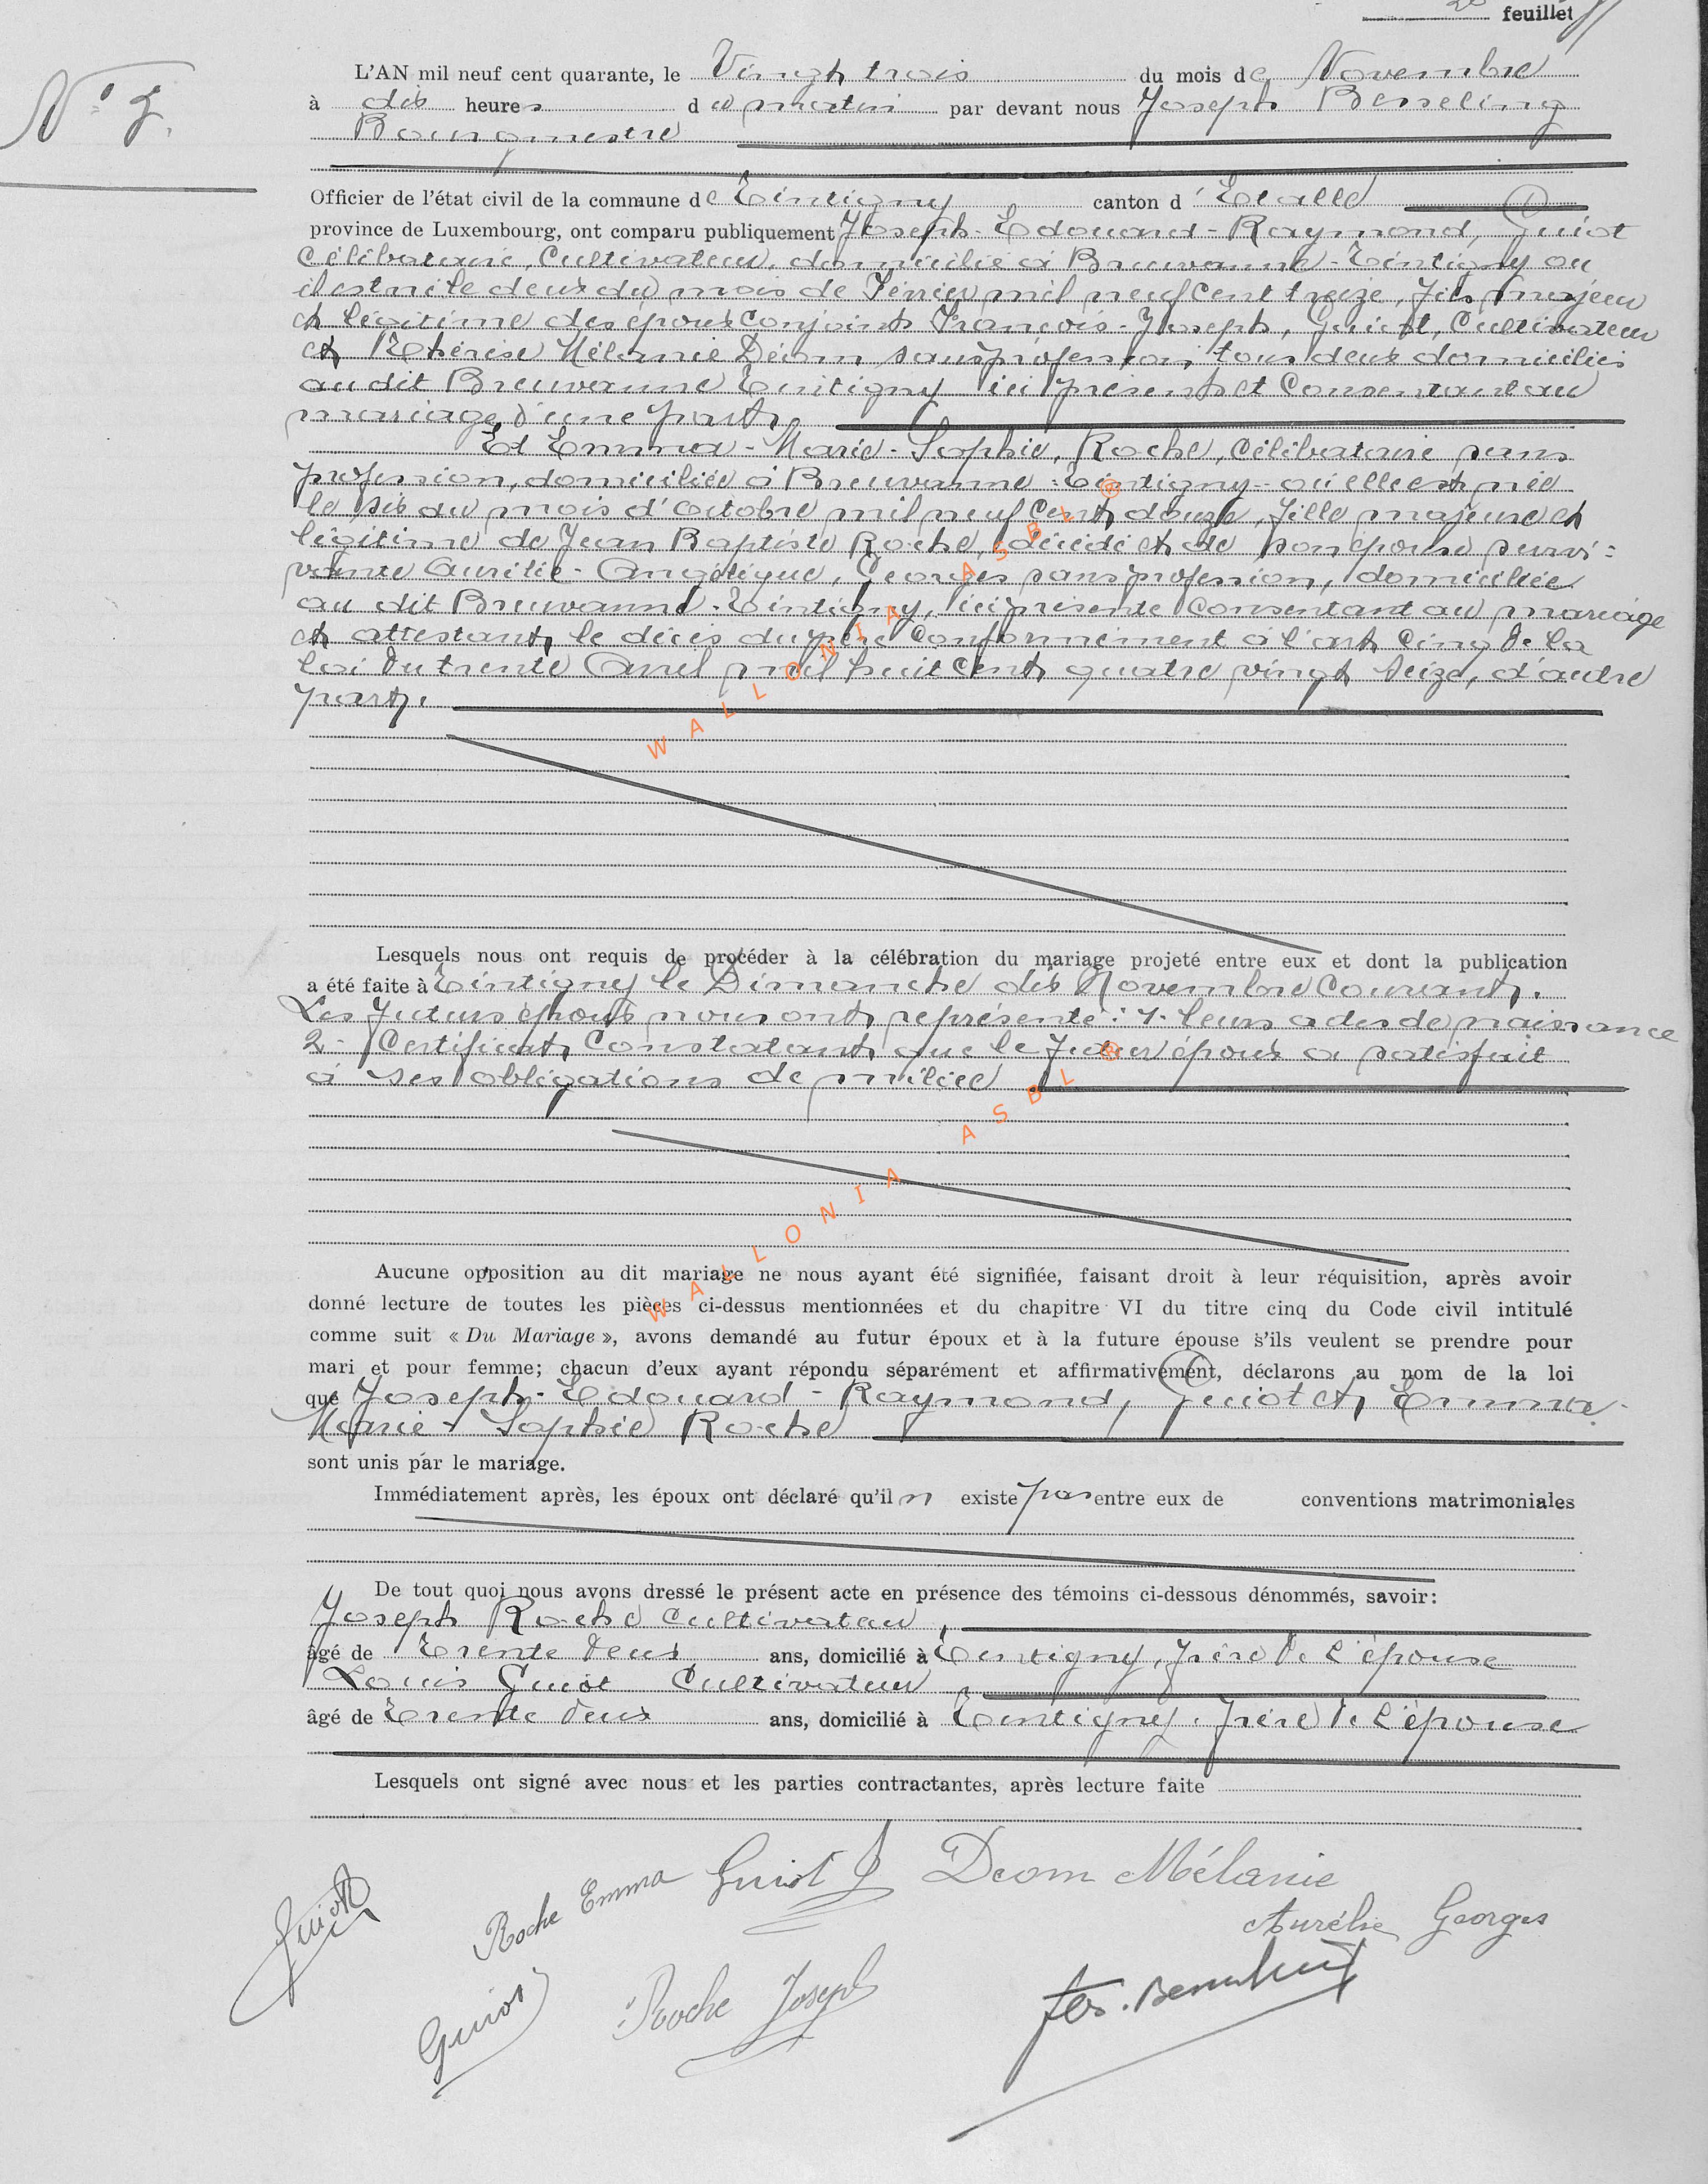 feuillet
N° 7.
L'AN mil neuf cent quarante, le Vingt trois du mois de Novembre
à dix heures du matin par devant nous Joseph Besseling
Bourgmestre
Officier de l'état civil de la commune de Tintigny canton d' Etalle
province de Luxembourg, ont comparu publiquement Joseph-Edouard-Raymond, Guiot
Célibataire, Cultivateur, domicilié à Breuvanne-Tintigny où
il est né le deux du mois de Février mil neuf cent treize, fils majeur
et légitime des époux conjoints François-Joseph, Guiot, Cultivateur
et Thérèse Mélanie Déom sans profession, tous deux domiciliés
au dit Breuvanne Tintigny ici présents et Consentant au
mariage d'une part.
Et Emma-Marie-Sophie, Roche, Célibataire sans
profession, domiciliée à Breuvanne-Tintigny-où elle est née
le six du mois d'octobre mil neuf cent douze, fille majeure et
légitime de Jean Baptiste Roche, décédé et de son épouse survi=
vante Aurélie-Angélique, Georges sans profession, domiciliée
au dit Breuvanne-Tintigny, ici présente Consentant au mariage
et attestant le décès du père Conformément à l'art cinq de la
loi du trente Avril mil huit cent quatre vingt seize, d'autre
part.
WALLONIA ASBL ®
Lesquels nous ont requis de procéder à la célébration du mariage projeté entre eux et dont la publication
a été faite à Tintigny le Dimanche dix Novembre Courant.
Les futurs époux nous ont représenté: 1- leurs actes de naissance
2- Certificat Constatant que le futur époux a satisfait
à ses obligations de milice
WALLONIA ASBL ®
Aucune opposition au dit mariage ne nous ayant été signifiée, faisant droit à leur réquisition, après avoir
donné lecture de toutes les pièces ci-dessus mentionnées et du chapitre VI du titre cinq du Code civil intitulé
comme suit « Du Mariage », avons demandé au futur époux et à la future épouse s'ils veulent se prendre pour
mari et pour femme; chacun d'eux ayant répondu séparément et affirmativement, déclarons au nom de la loi
que Joseph-Edouard-Raymond, Guiot et Emma-
Marie-Sophie Roche
sont unis par le mariage.
Immédiatement après, les époux ont déclaré qu'il n existe pas entre eux de conventions matrimoniales
De tout quoi nous avons dressé le présent acte en présence des témoins ci-dessous dénommés, savoir:
Joseph Roche Cultivateur,
âgé de Trente deux ans, domicilié à Tintigny, frère de l'épouse
Louis Guiot Cultivateur
âgé de Trente deux ans, domicilié à Tintigny, frère de l'épouse
Lesquels ont signé avec nous et les parties contractantes, après lecture faite
Guiot Roche Emma Guiot J Deom Mélanie
Aurélie Georges
Guiot Roche Joseph